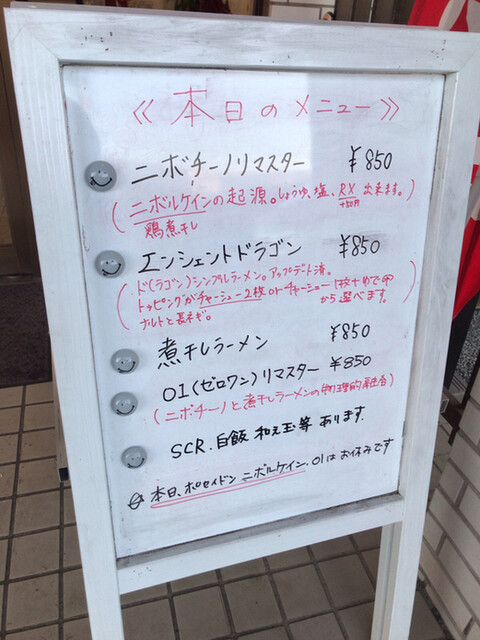 《本日のメニュー》
ニボチーノリマスター ¥850
(ニボルケインの起源。しょうゆ、塩、RX 出来ます。
+50円
鶏煮干し
エンシェントドラゴン ¥850
ド(ラゴン)シンプルラーメン。アップデート済。
トッピングがチャーシュー2枚orチャーシュー1枚+めで卵
から選べます。
ナルトと長ネギ。
煮干しラーメン ¥850
01(ゼロワン)リマスター ¥850
(ニボチーノと煮干しラーメンの物理的融合)
SCR.白飯 和え玉等 あります.
本日、ポセイドン ニボルケイン、01はお休みです